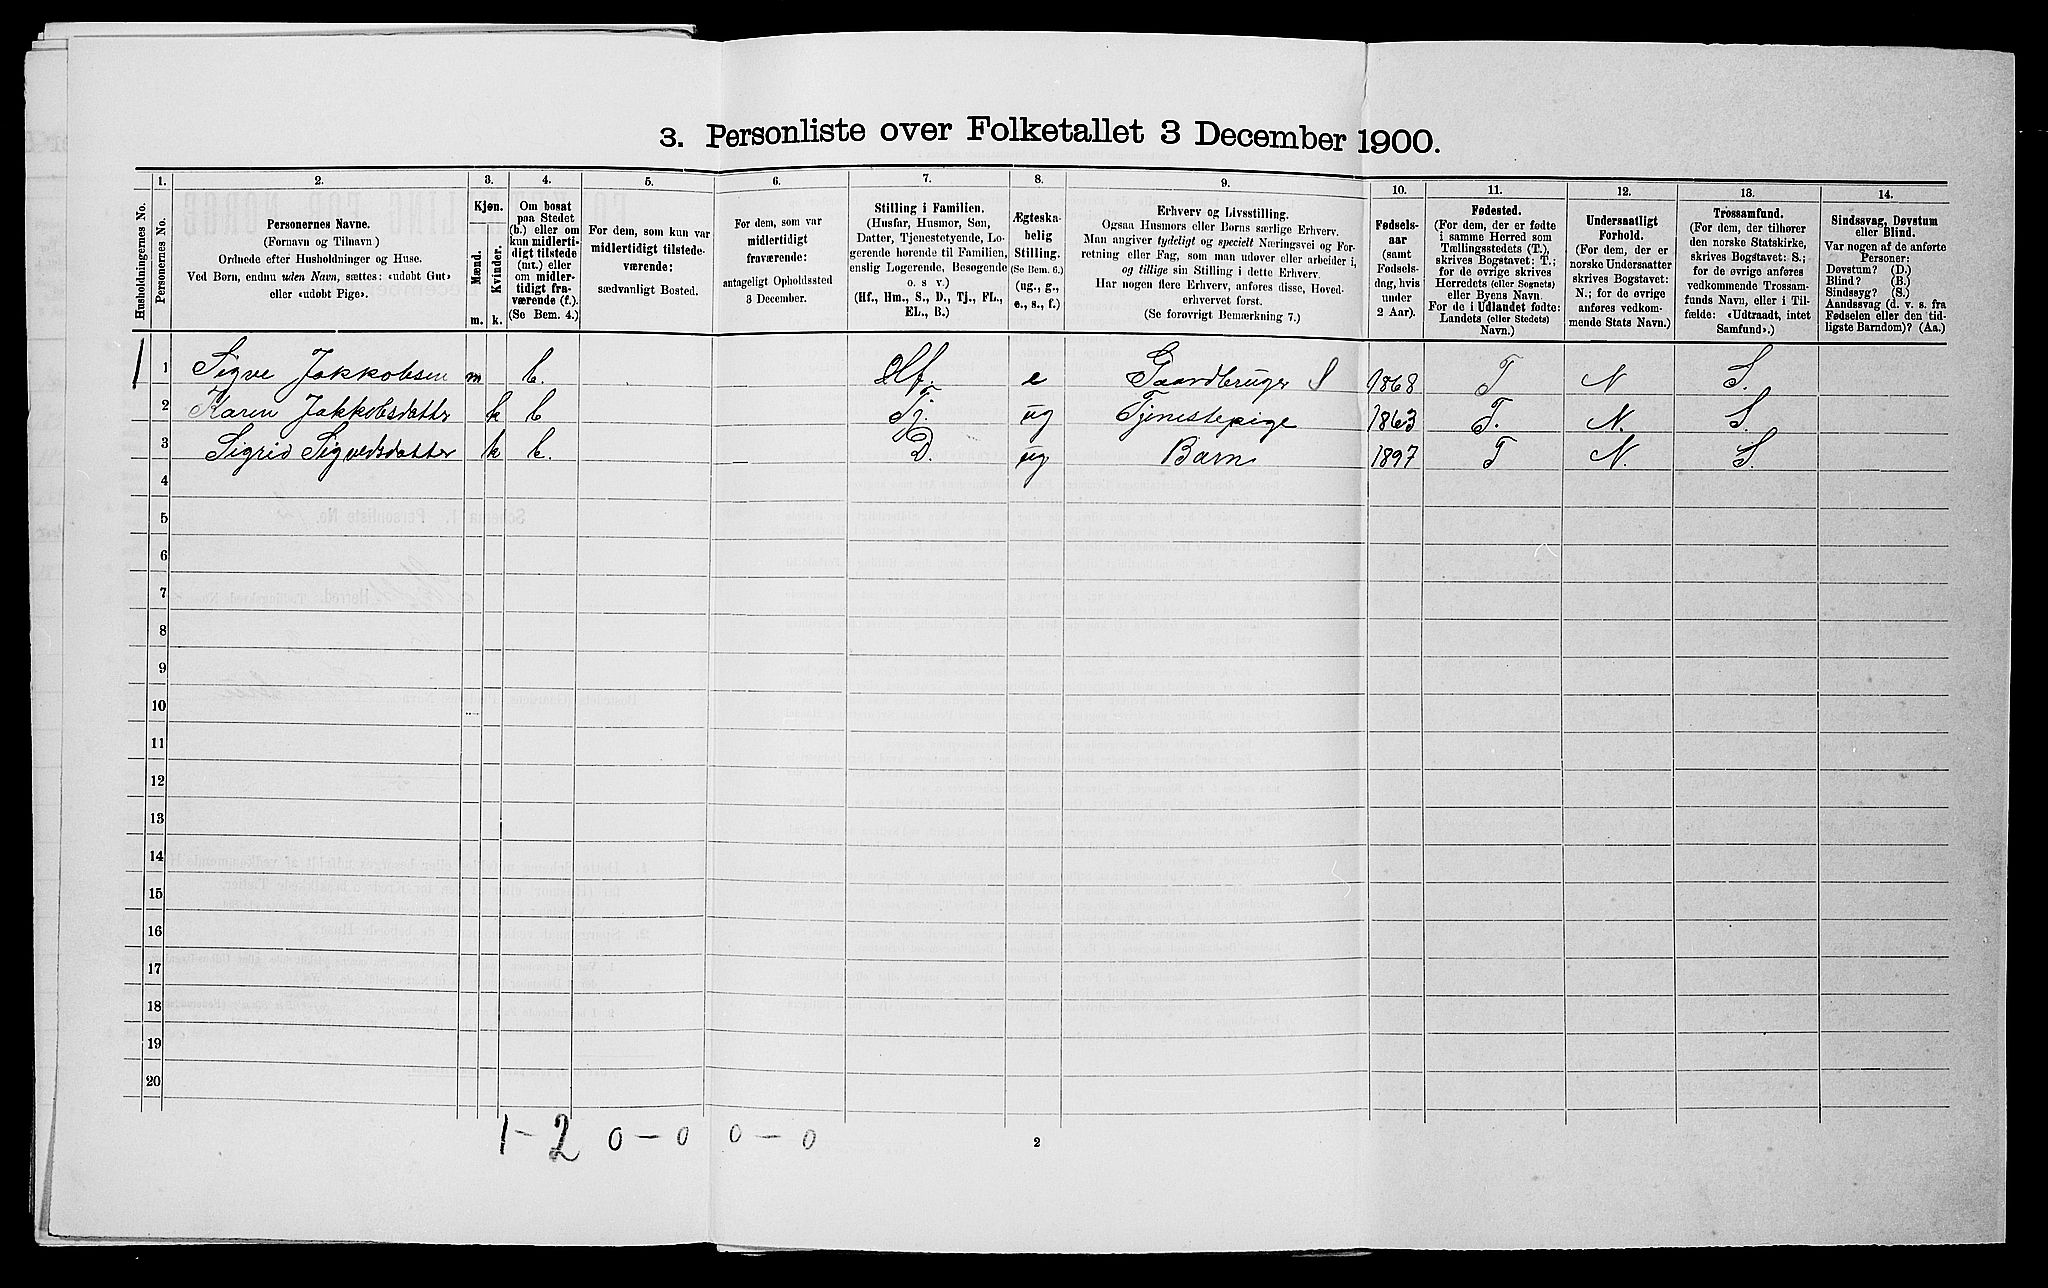 3. Personliste over Folketallet 3 December 1900.
1. 2. 3. 4. 5. 6. 7. 8. 9. 10. 11. 12. 13. 14.
Husholdningernes No.
Personernes No.
Personernes Navne.
(Fornavn og Tilnavn.)
Ordnede efter Husholdninger og Huse.
Ved Børn, endnu uden Navn, sættes: «udøbt Gut»
eller «udøbt Pige».
Kjøn.
Mænd.
Kvinder.
m. k.
Om bosat
paa Stedet
(b.) eller om
kun midlerti-
digt tilstede
(mt.) eller
om midler-
tidigt fra-
værende (f.).
(Se Bem. 4.)
For dem, som kun var
midlertidigt tilstede-
værende:
sædvanligt Bosted.
For dem, som var
midlertidigt
fraværende:
antageligt Opholdssted
3 December.
Stilling i Familien.
(Husfar, Husmor, Søn,
Datter, Tjenestetyende, Lo-
gerende hørende til Familien,
enslig Logerende, Besøgende
o. s v.)
(Hf., Hm., S., D., Tj., FL.,
EL., B.)
Ægteska-
belig
Stilling.
(Se Bem. 6.)
(ug., g.,
e., s., f.)
Erhverv og Livsstilling.
Ogsaa Husmors eller Børns særlige Erhverv.
Man angiver tydeligt og specielt Næringsvei og For-
retning eller Fag, som man udøver eller arbeider i,
og tillige sin Stilling i dette Erhverv.
Har nogen flere Erhverv, anføres disse, Hoved-
erhvervet først.
(Se forøvrigt Bemærkning 7.)
Fødsels-
aar
(samt
Fødsels-
dag, hvis
under
2 Aar).
Fødested.
(For dem, der er fødte
i samme Herred som
Tællingsstedets (T.),
skrives Bogstavet: T.;
for de øvrige skrives
Herredets (eller Sognets)
eller Byens Navn.
For de i Udlandet fødte:
Landets (eller Stedets)
Navn.)
Undersaatligt
Forhold.
(For dem, der er
norske Undersaatter
skrives Bogstavet:
N.; for de øvrige
anføres vedkom-
mende Stats Navn.)
Trossamfund.
(For dem, der tilhører
den norske Statskirke,
skrives Bogstavet: S.;
for de øvrige anføres
vedkommende Trossam-
funds Navn, eller i Til-
fælde: «Udtraadt, intet
Samfund».)
Sindssvag, Døvstum
eller Blind.
Var nogen af de anførte
Personer:
Døvstum? (D.)
Blind? (B.)
Sindssyg? (S.)
Aandssvag (d. v. s. fra
Fødselen eller den tid-
ligste Barndom)? (Aa.)
1 1 Sigve Jakkobsen m b. Hf. e Gaardbruger S 1868 T N S.
2 Karen Jakkobsdatter k b Tj. ug Tjenestepige 1863 T. N. S.
3 Sigrid Sigvedsdatter k b. D. ug Barn 1897 T N. S.
4
5
6
7
8
9
10
11
12
13
14
15
16
17
18
19
20
1 - 2 0 - 0 0 - 0
2